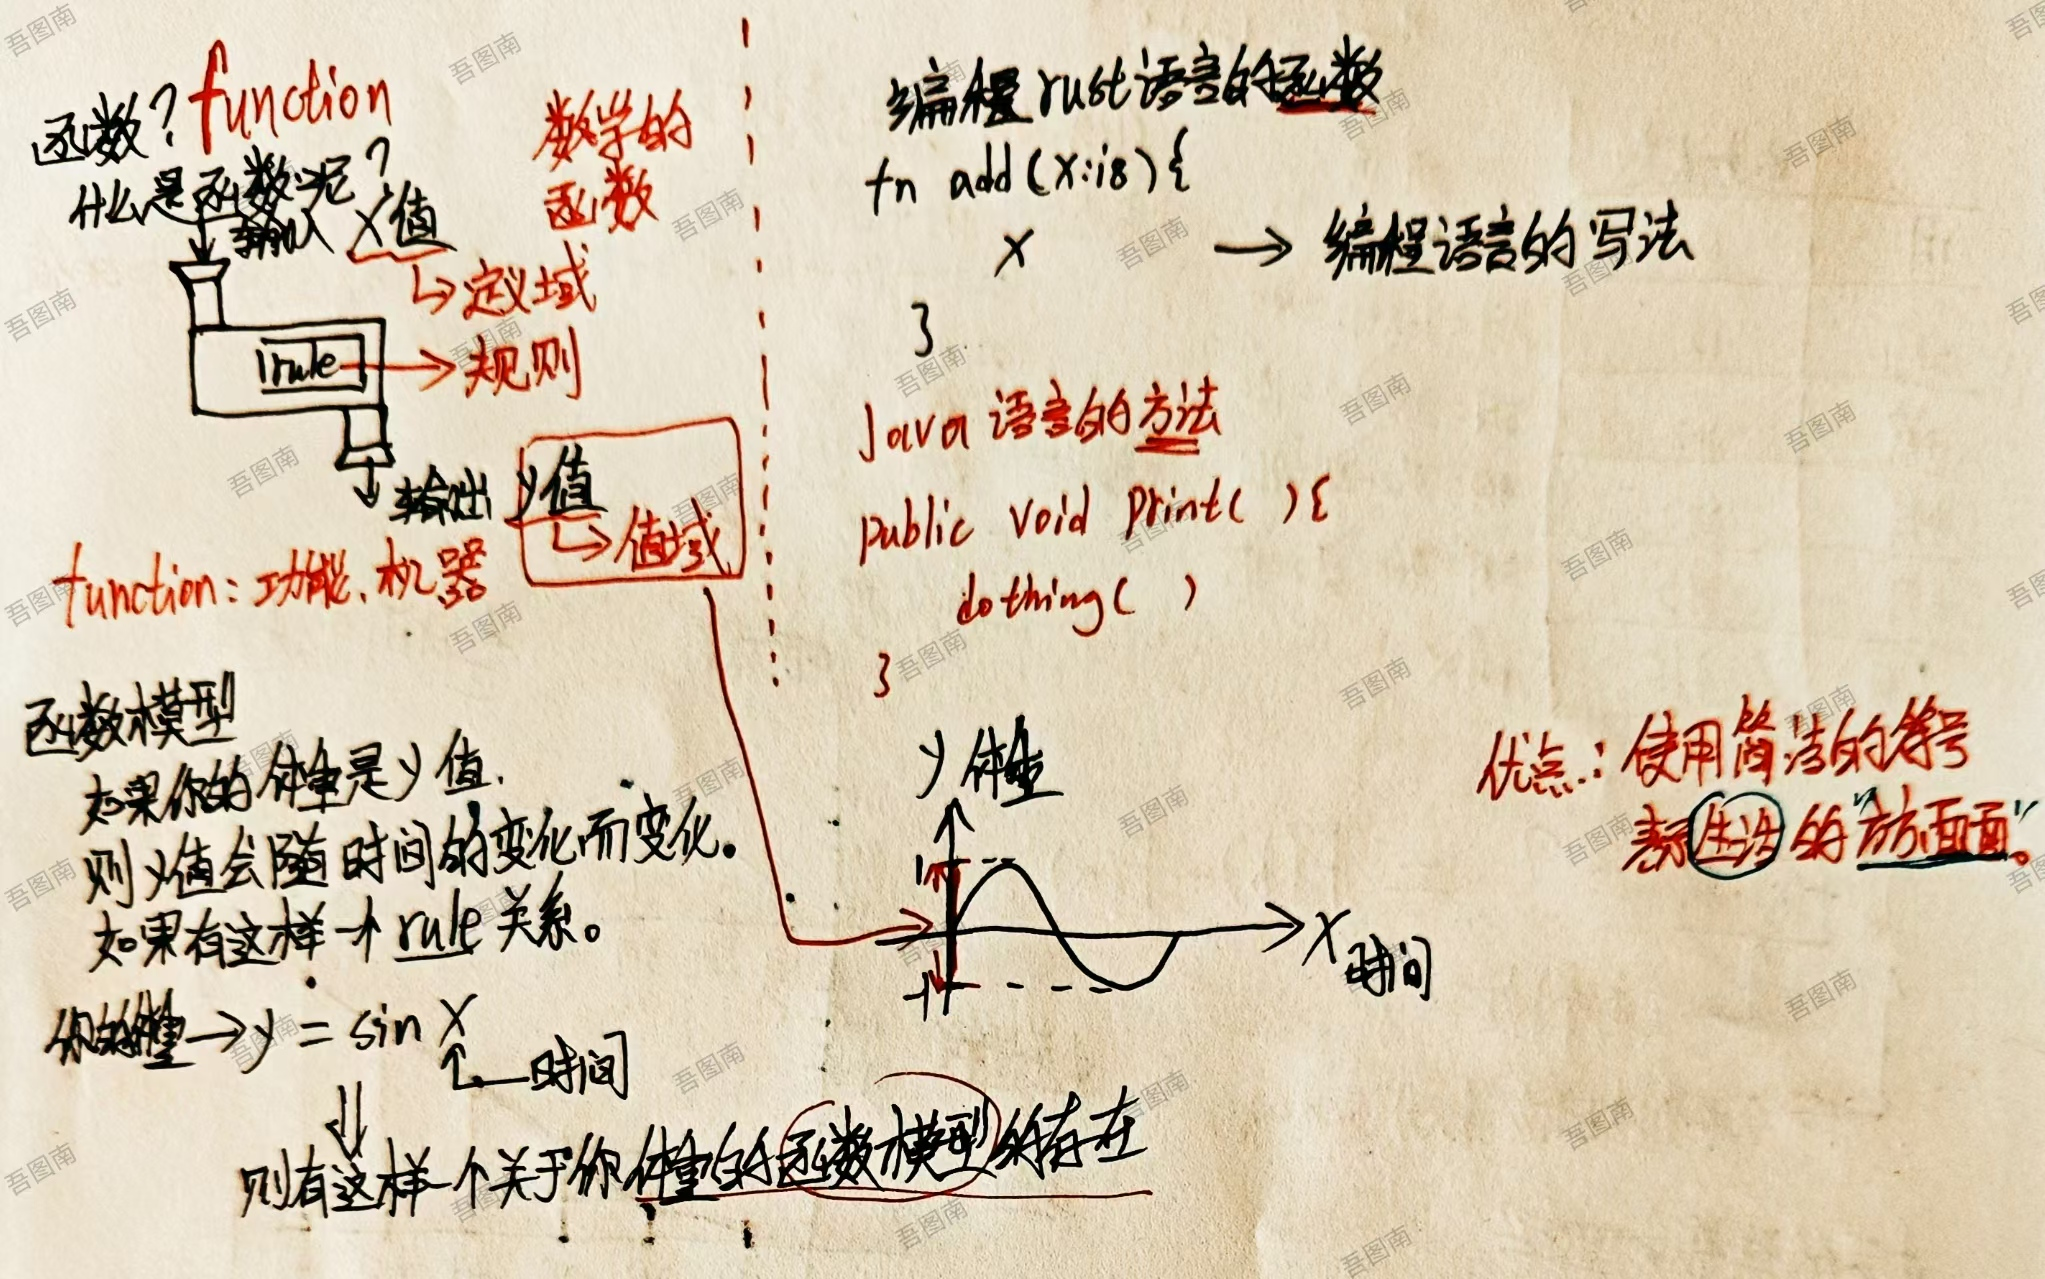 函数? function
什么是函数呢?
数学的
函数
输入 X值
定义域
rule
规则
输出 y值
值域
function: 功能、机器
编程rust语言的函数
fn add(X:i8){
X
}
编程语言的写法
Java 语言的方法
public void print( ){
dothing( )
}
函数模型
如果你的体重是y值.
则y值会随时间的变化而变化。
如果有这样一个rule关系。
你的体重→y = sin X
时间
则有这样一个关于你体重的函数模型的存在
y 体重
1
-1
X
时间
优点: 使用简洁的符号
表示生活的"方方面面"。
吾图南